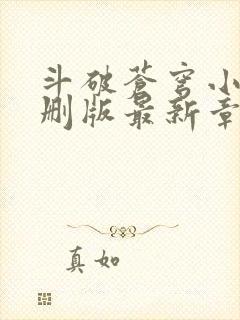 斗破苍穹小
删版最新章
真如